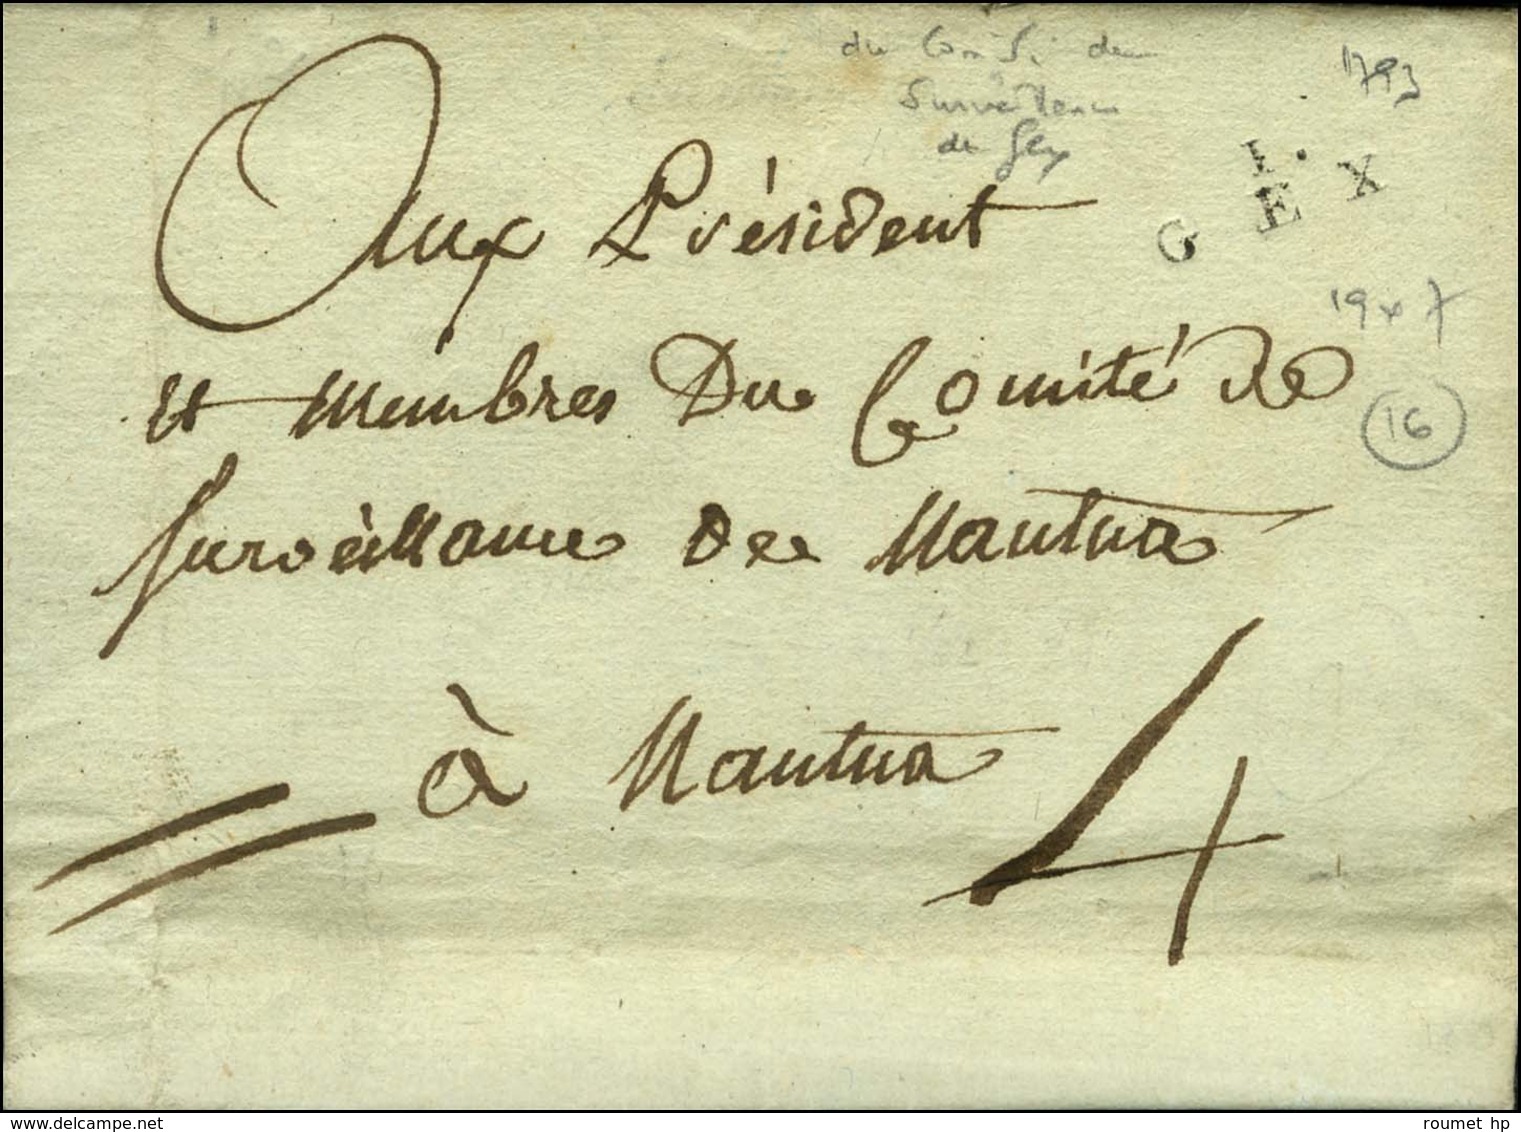 du Comité de
Surveillance
de Gex
1793
1.
GEX
Aux Président
et Membres Du Comité De
Surveillance De Nantua
à Nantua
4
19 x 7
16
delcampe.net
roumet hp